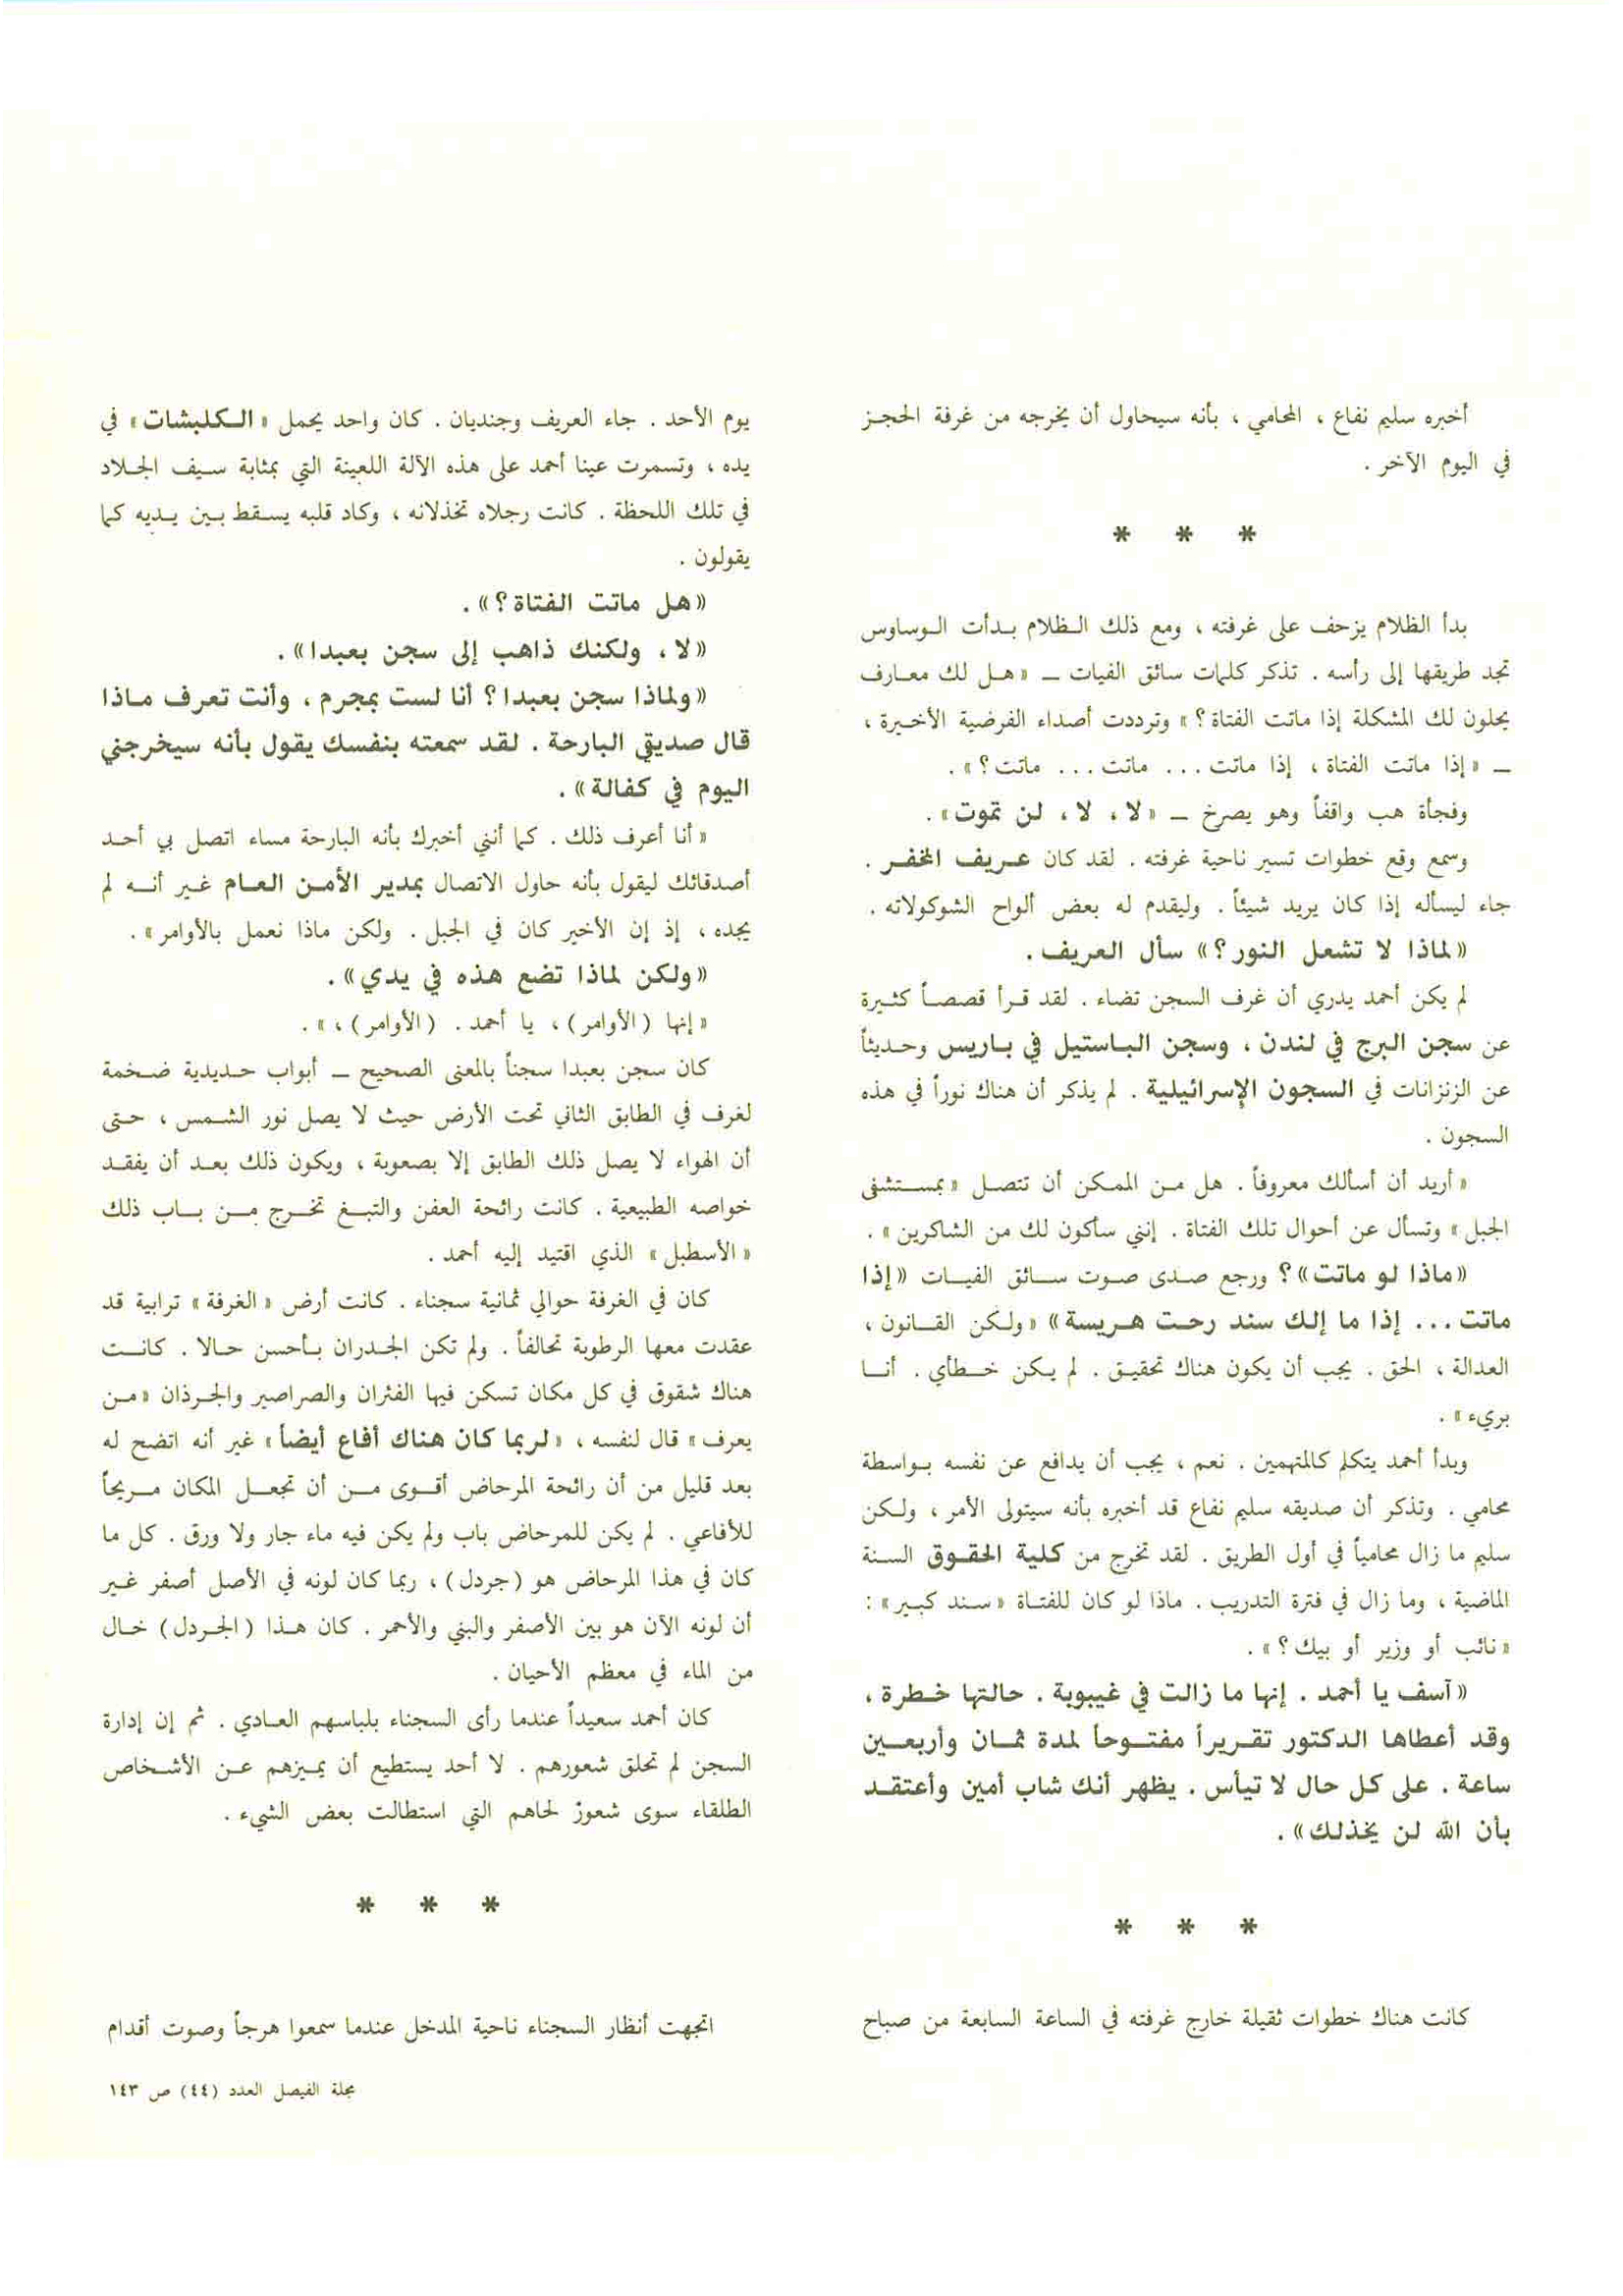 أخبره سليم نفاع ، المحامي ، بأنه سيحاول أن يخرجه من غرفة الحجـز
في اليوم الآخر .
* * *
بدأ الظلام يزحف على غرفته ، ومع ذلك الـظلام بـدأت الـوساوس
تجد طريقها إلى رأسه . تذكر كلمات سائق الفيات ــ « هـل لك معـارف
يحلون لك المشكلة إذا ماتت الفتاة ؟ » وترددت أصداء الفرضية الأخـيرة ،
ــ « إذا ماتت الفتاة ، إذا ماتت ... ماتت ... ماتت ؟ » .
وفجأة هب واقفاً وهو يصرخ ــ « لا ، لا ، لن تموت » .
وسمع وقع خطوات تسير ناحية غرفته . لقد كان عـريف المخفـر .
جاء ليسأله إذا كان يريد شيئاً . وليقدم له بعض ألواح الشوكولاته .
« لماذا لا تشعل النور ؟ » سأل العريف .
لم يكن أحمد يدري أن غرف السجن تضاء . لقد قـرأ قصصـاً كثـيرة
عن سجن البرج في لندن ، وسجن البـاستيل في بـاريس وحـديثاً
عن الزنزانات في السجون الإسرائيلية . لم يذكر أن هناك نوراً في هذه
السجون .
« أريد أن أسألك معروفاً . هل مـن الممكـن أن تتصـل « بمسـتشفى
الجبل » وتسأل عن أحوال تلك الفتاة . إنني سأكون لك من الشاكرين » .
« ماذا لو ماتت » ؟ ورجع صـدى صـوت سـائق الفيـات « إذا
ماتت ... إذا ما إلـك سند رحـت هـريسة » « ولـكن القـانون ،
العدالة ، الحق . يجب أن يكون هناك تحقيـق . لم يـكن خـطأي . أنـا
بريء » .
وبدأ أحمد يتكلم كالمتهمين . نعم ، يجب أن يدافع عن نفسه بـواسطة
محامي . وتذكر أن صديقه سليم نفاع قد أخبره بأنه سيتولى الأمر ، ولـكن
سليم ما زال محامياً في أول الطريق . لقد تخرج من كلية الحقـوق السـنة
الماضية ، وما زال في فترة التدريب . ماذا لو كان للفتـاة « سـند كبـير » :
« نائب أو وزير أو بيك ؟ » .
« آسف يا أحمد . إنها ما زالت في غيبوبة . حالتها خـطرة ،
وقد أعطاها الدكتور تقـريراً مفتـوحاً لمدة ثمـان وأربعـين
ساعة . على كل حال لا تيأس . يظهر أنك شاب أمين وأعتقـد
بأن الله لن يخذلك » .
* * *
كانت هناك خطوات ثقيلة خارج غرفته في الساعة السابعة من صباح
يوم الأحد . جاء العريف وجنديان . كان واحد يحمل « الـكلبشات » في
يده ، وتسمرت عينا أحمد على هذه الآلة اللعينة التي بمثابة سـيف الجـلاد
في تلك اللحظة . كانت رجلاه تخذلانه ، وكاد قلبه يسـقط بـين يـديه كما
يقولون .
« هل ماتت الفتاة ؟ » .
« لا ، ولكنك ذاهب إلى سجن بعبدا » .
« ولماذا سجن بعبدا ؟ أنا لست بمجرم ، وأنت تعرف مـاذا
قال صديقي البارحة . لقد سمعته بنفسك يقول بأنه سيخرجني
اليوم في كفالة » .
« أنا أعرف ذلك . كما أنني أخبرك بأنه البارحة مساء اتصل بي أحـد
أصدقائك ليقول بأنه حاول الاتصال بمدير الأمـن العـام غـير أنـه لم
يجده ، إذ إن الأخير كان في الجبل . ولكن ماذا نعمل بالأوامر » .
« ولكن لماذا تضع هذه في يدي » .
« إنها ( الأوامر ) ، يا أحمد . ( الأوامر ) ، » .
كان سجن بعبدا سجناً بالمعنى الصحيح ــ أبواب حـديدية ضـخمة
لغرف في الطابق الثاني تحت الأرض حيث لا يصل نور الشـمس ، حـتى
أن الهواء لا يصل ذلك الطابق إلا بصعوبة ، ويكون ذلك بعـد أن يفقـد
خواصه الطبيعية . كانت رائحة العفن والتبـغ تخـرج مـن بـاب ذلك
« الأسطبل » الذي اقتيد إليه أحمد .
كان في الغرفة حوالي ثمانية سجناء . كانت أرض « الغرفة » ترابية قد
عقدت معها الرطوبة تحالفاً . ولم تكن الجـدران بـأحسن حـالا . كانـت
هناك شقوق في كل مكان تسكن فيها الفئران والصراصير والجـرذان « مـن
يعرف » قال لنفسه ، « لـربما كان هناك أفاع أيضاً » غير أنه اتضح له
بعد قليل من أن رائحة المرحاض أقـوى مـن أن تجعـل المكان مـريحاً
للأفاعي . لم يكن للمرحاض باب ولم يكن فيه ماء جار ولا ورق . كل ما
كان في هذا المرحاض هو ( جردل ) ، ربما كان لونه في الأصل أصفر غـير
أن لونه الآن هو بين الأصفر والبني والأحمر . كان هـذا ( الجـردل ) خـال
من الماء في معظم الأحيان .
كان أحمد سعيداً عندما رأى السجناء بلباسهم العـادي . ثم إن إدارة
السجن لم تحلق شعورهم . لا أحد يستطيع أن يمـيزهم عـن الأشـخاص
الطلقاء سوى شعور لحاهم التي استطالت بعض الشيء .
* * *
اتجهت أنظار السجناء ناحية المدخل عندما سمعوا هرجاً وصوت أقدام
مجلة الفيصل العدد (٤٤) ص ١٤٣